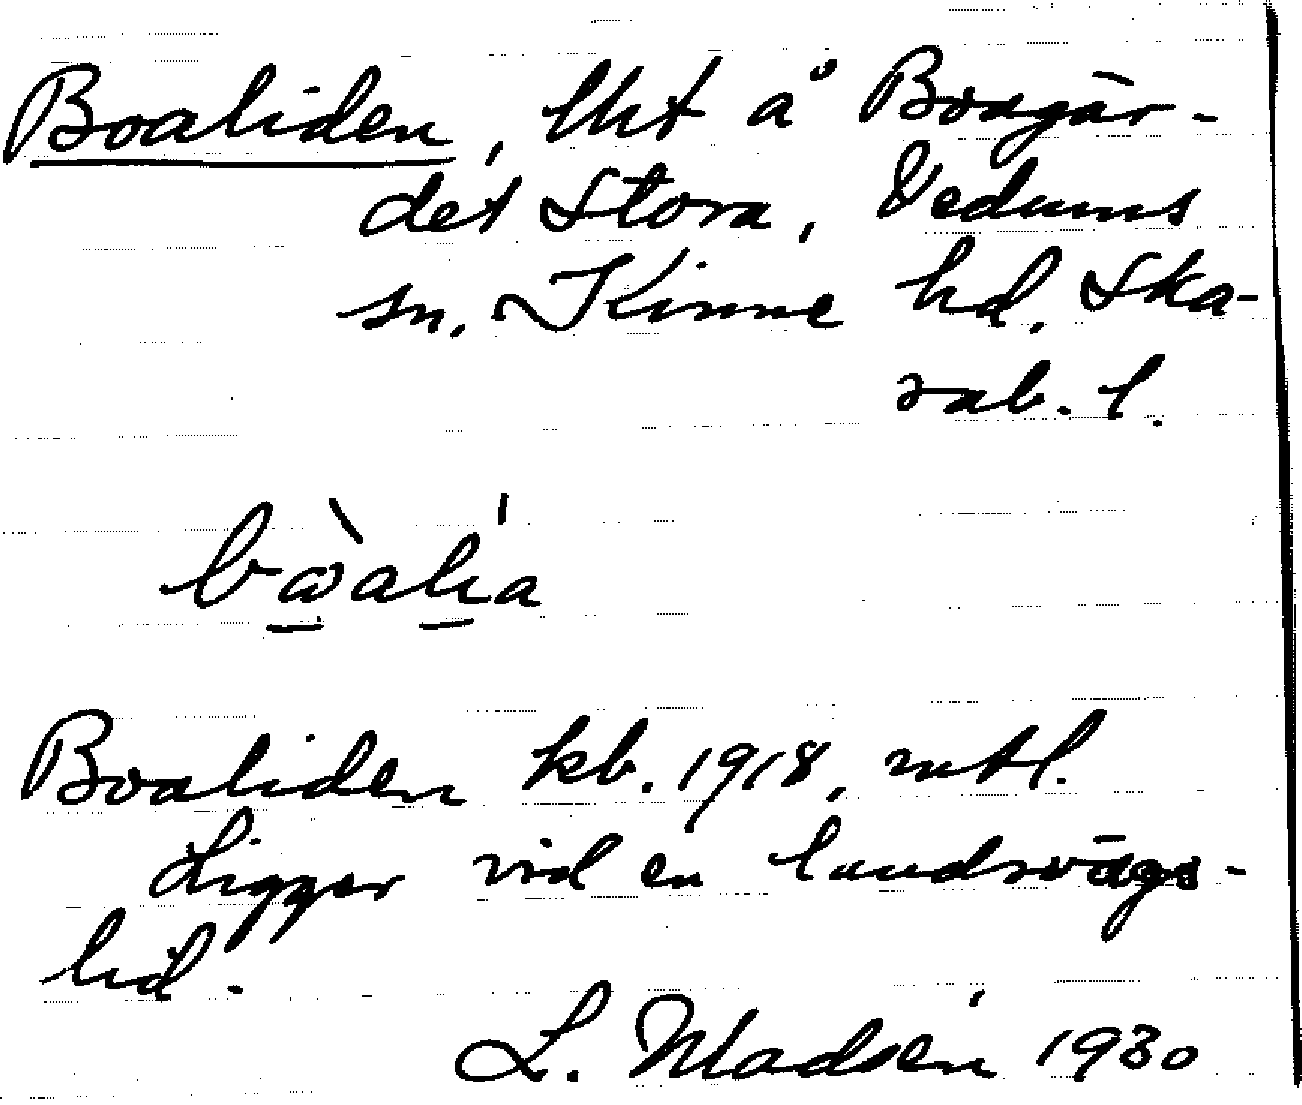 Boaliden, lht å Boagär-
det Stora, Vedums
sn. Kinne hd. Ska-
rab. l.
bòalía
Boaliden kb. 1918, mtl.
Ligger vid en landsvägs-
lid.
L. Madsén 1930